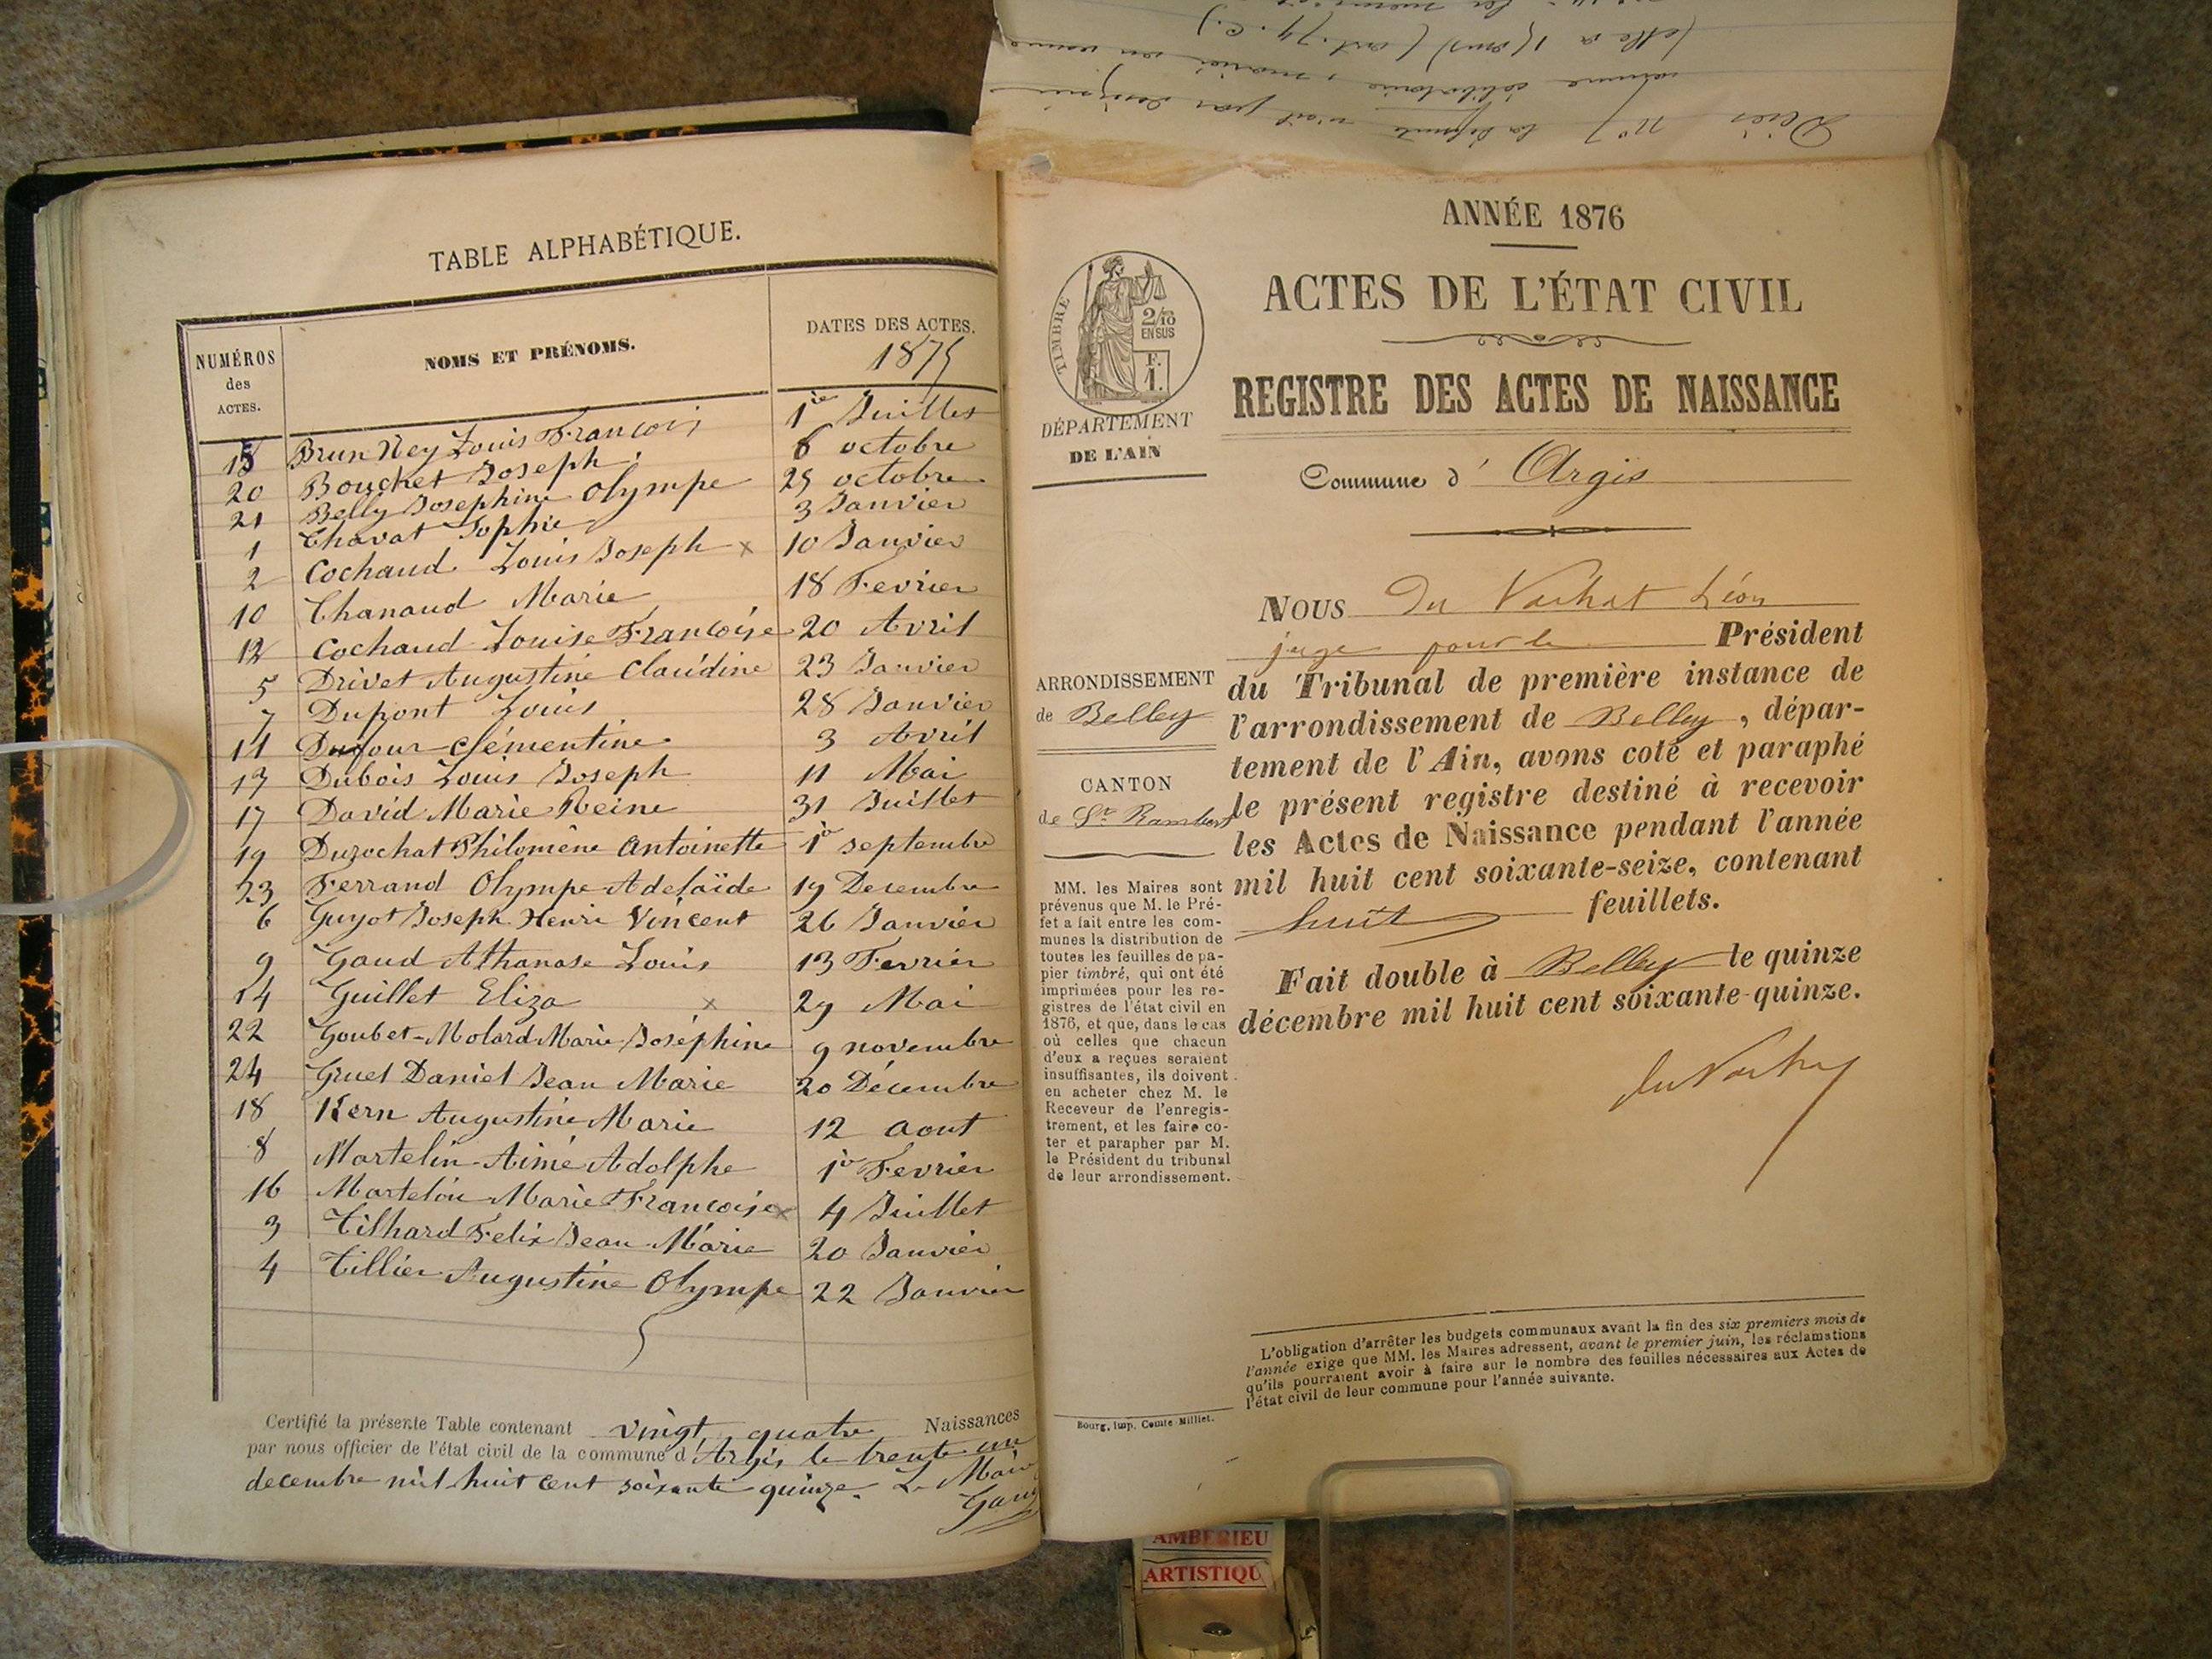 TABLE ALPHABÉTIQUE.
NUMÉROS des ACTES. NOMS ET PRÉNOMS. DATES DES ACTES. 1875
15 Brun Ney Louis François 1er Juillet
20 Bouchet Joseph 6 octobre
21 Belly Josephine Olympe 25 octobre
1 Chavat Sophie 3 Janvier
2 Cochaud Louis Joseph x 10 Janvier
10 Chanaud Marie 18 Fevrier
12 Cochaud Louise Françoise 20 Avril
5 Drivet Augustine Claudine 23 Janvier
7 Dupont Louis 28 Janvier
11 Dufour Clémentine 3 Avril
13 Dubois Louis Joseph 11 Mai
17 David Marie Reine 31 Juillet
19 Durochat Philomène Antoinette 1er septembre
23 Ferrand Olympe Adelaïde 19 Decembre
6 Guyot Joseph Henri Vincent 26 Janvier
9 Gaud Athanase Louis 13 Fevrier
14 Guillet Eliza x 29 Mai
22 Goubet-Molard Marie Joséphine 9 novembre
24 Gruet Daniel Jean Marie 20 Décembre
18 Kern Augustine Marie 12 Aout
8 Martelin Aimé Adolphe 1er Fevrier
16 Martelin Marie Françoise x 4 Juillet
3 Tilhard Felix Jean Marie 20 Janvier
4 Tillier Augustine Olympe 22 Janvier
Certifié la présente Table contenant vingt quatre Naissances
par nous officier de l'état civil de la commune d'Argis le trente un
decembre mil huit cent soixante quinze. Le Maire
ANNÉE 1876
ACTES DE L'ÉTAT CIVIL
REGISTRE DES ACTES DE NAISSANCE
Commune d' Argis
TIMBRE
2/10
EN SUS
F.
1.
DÉPARTEMENT
DE L'AIN
ARRONDISSEMENT
de Belley
CANTON
de St Rambert
MM. les Maires sont
prévenus que M. le Pré-
fet a fait entre les com-
munes la distribution de
toutes les feuilles de pa-
pier timbré, qui ont été
imprimées pour les re-
gistres de l'état civil en
1876, et que, dans le cas
où celles que chacun
d'eux a reçues seraient
insuffisantes, ils doivent
en acheter chez M. le
Receveur de l'enregis-
trement, et les faire co-
ter et parapher par M.
le Président du tribunal
de leur arrondissement.
Bourg, Imp. Comte-Milliet.
NOUS Du Vachat Léon
juge pour le Président
du Tribunal de première instance de
l'arrondissement de Belley, dépar-
tement de l'Ain, avons coté et paraphé
le présent registre destiné à recevoir
les Actes de Naissance pendant l'année
mil huit cent soixante-seize, contenant
huit feuillets.
Fait double à Belley le quinze
décembre mil huit cent soixante-quinze.
du Vachat
L'obligation d'arrêter les budgets communaux avant la fin des six premiers mois de
l'année exige que MM. les Maires adressent, avant le premier juin, les réclamations
qu'ils pourraient avoir à faire sur le nombre des feuilles nécessaires aux Actes de
l'état civil de leur commune pour l'année suivante.
Décès n° 7 la défunte n'est pas désignée
comme célibataire, mariée ou veuve
(elle a 15 ans) (art. 79. C.)
AMBERIEU
ARTISTIQU